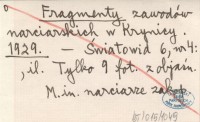 Fragmenty zawodów
narciarskich w Krynicy.
1929. — Światowid 6, nr 4:
, il. Tylko 9 fot. z objaśn.
M.in. narciarze zakop.